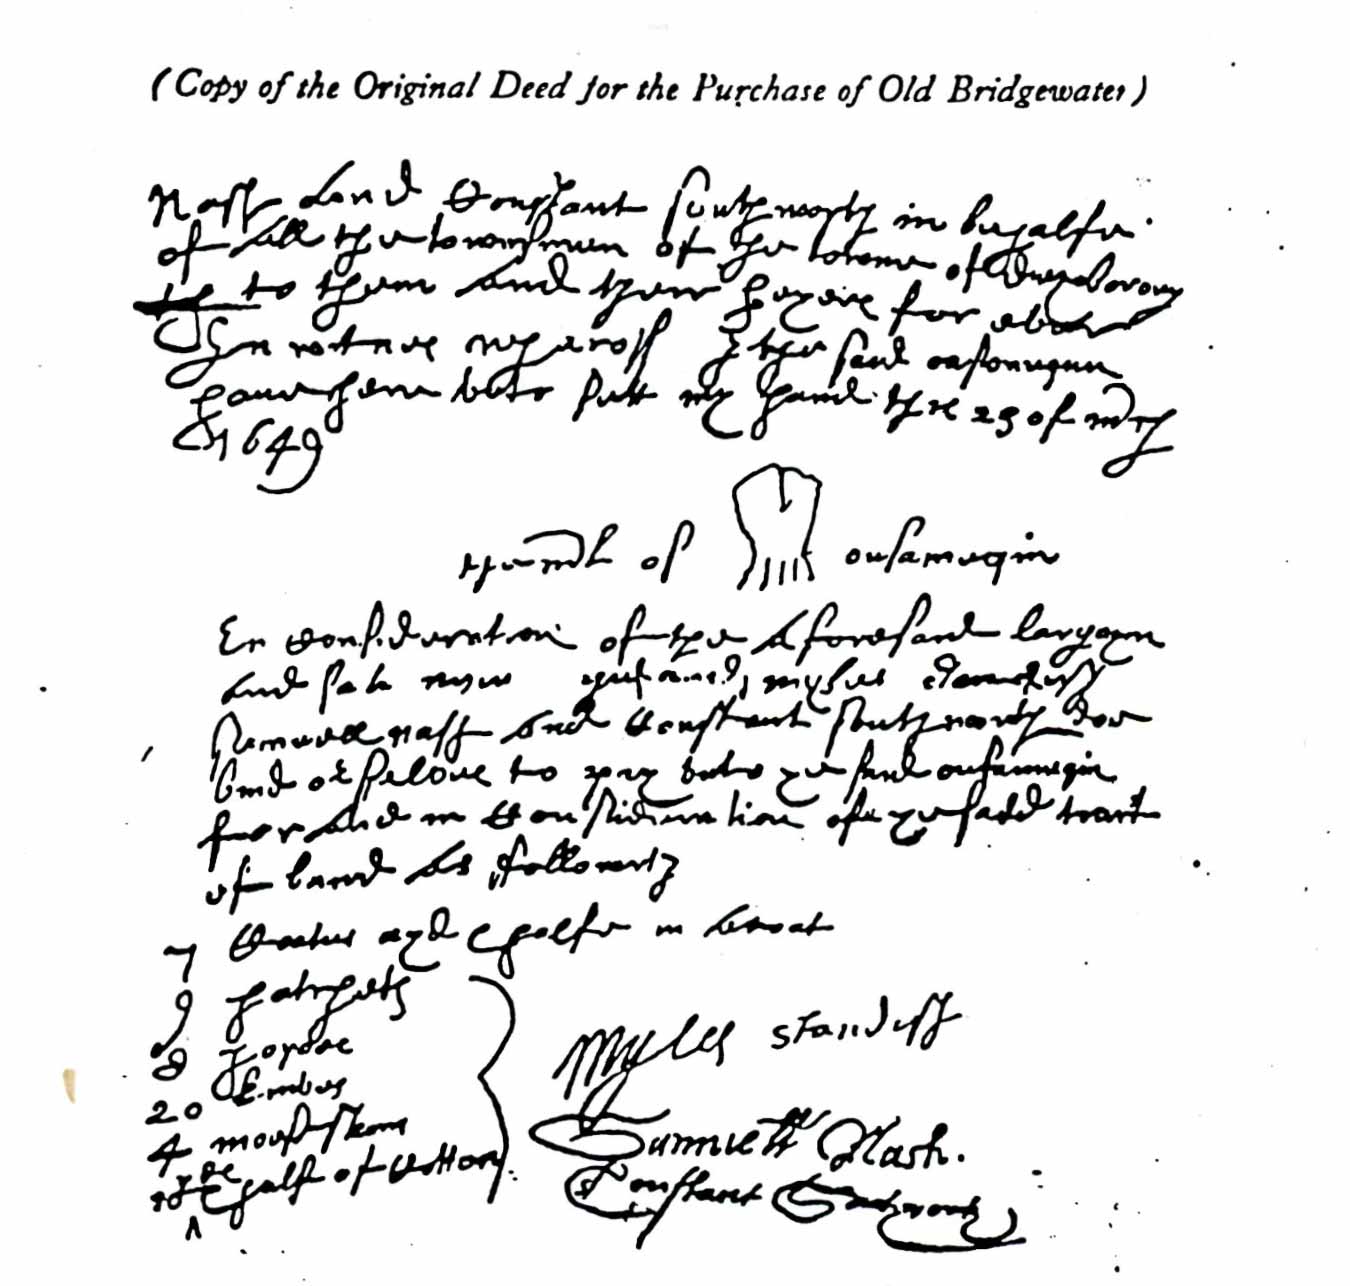 (Copy of the Original Deed for the Purchase of Old Bridgewater)
Nash and Constant southworth in behalfe
of all the townsmen of the towne of Duxborrow
to them and theyr heyers for ever
In witnes wherof I the said ousamequin
have here unto sett my hand the 23 of
1649
of ousamequin
In consideration of the aforesaid bargain
and sale wee myles standish
Samuell nash and Constant southworth doe
bind orselves to pay unto ye said ousamequin
for and in consideration of ye said tract
of land as followeth
7 Coates a yd halfe in a coat
9 hatchets
8 howes
20 knives
4 moose skins
10 yds halfe of cotton
Myles Standish
Samuell Nash.
Constant Southworth